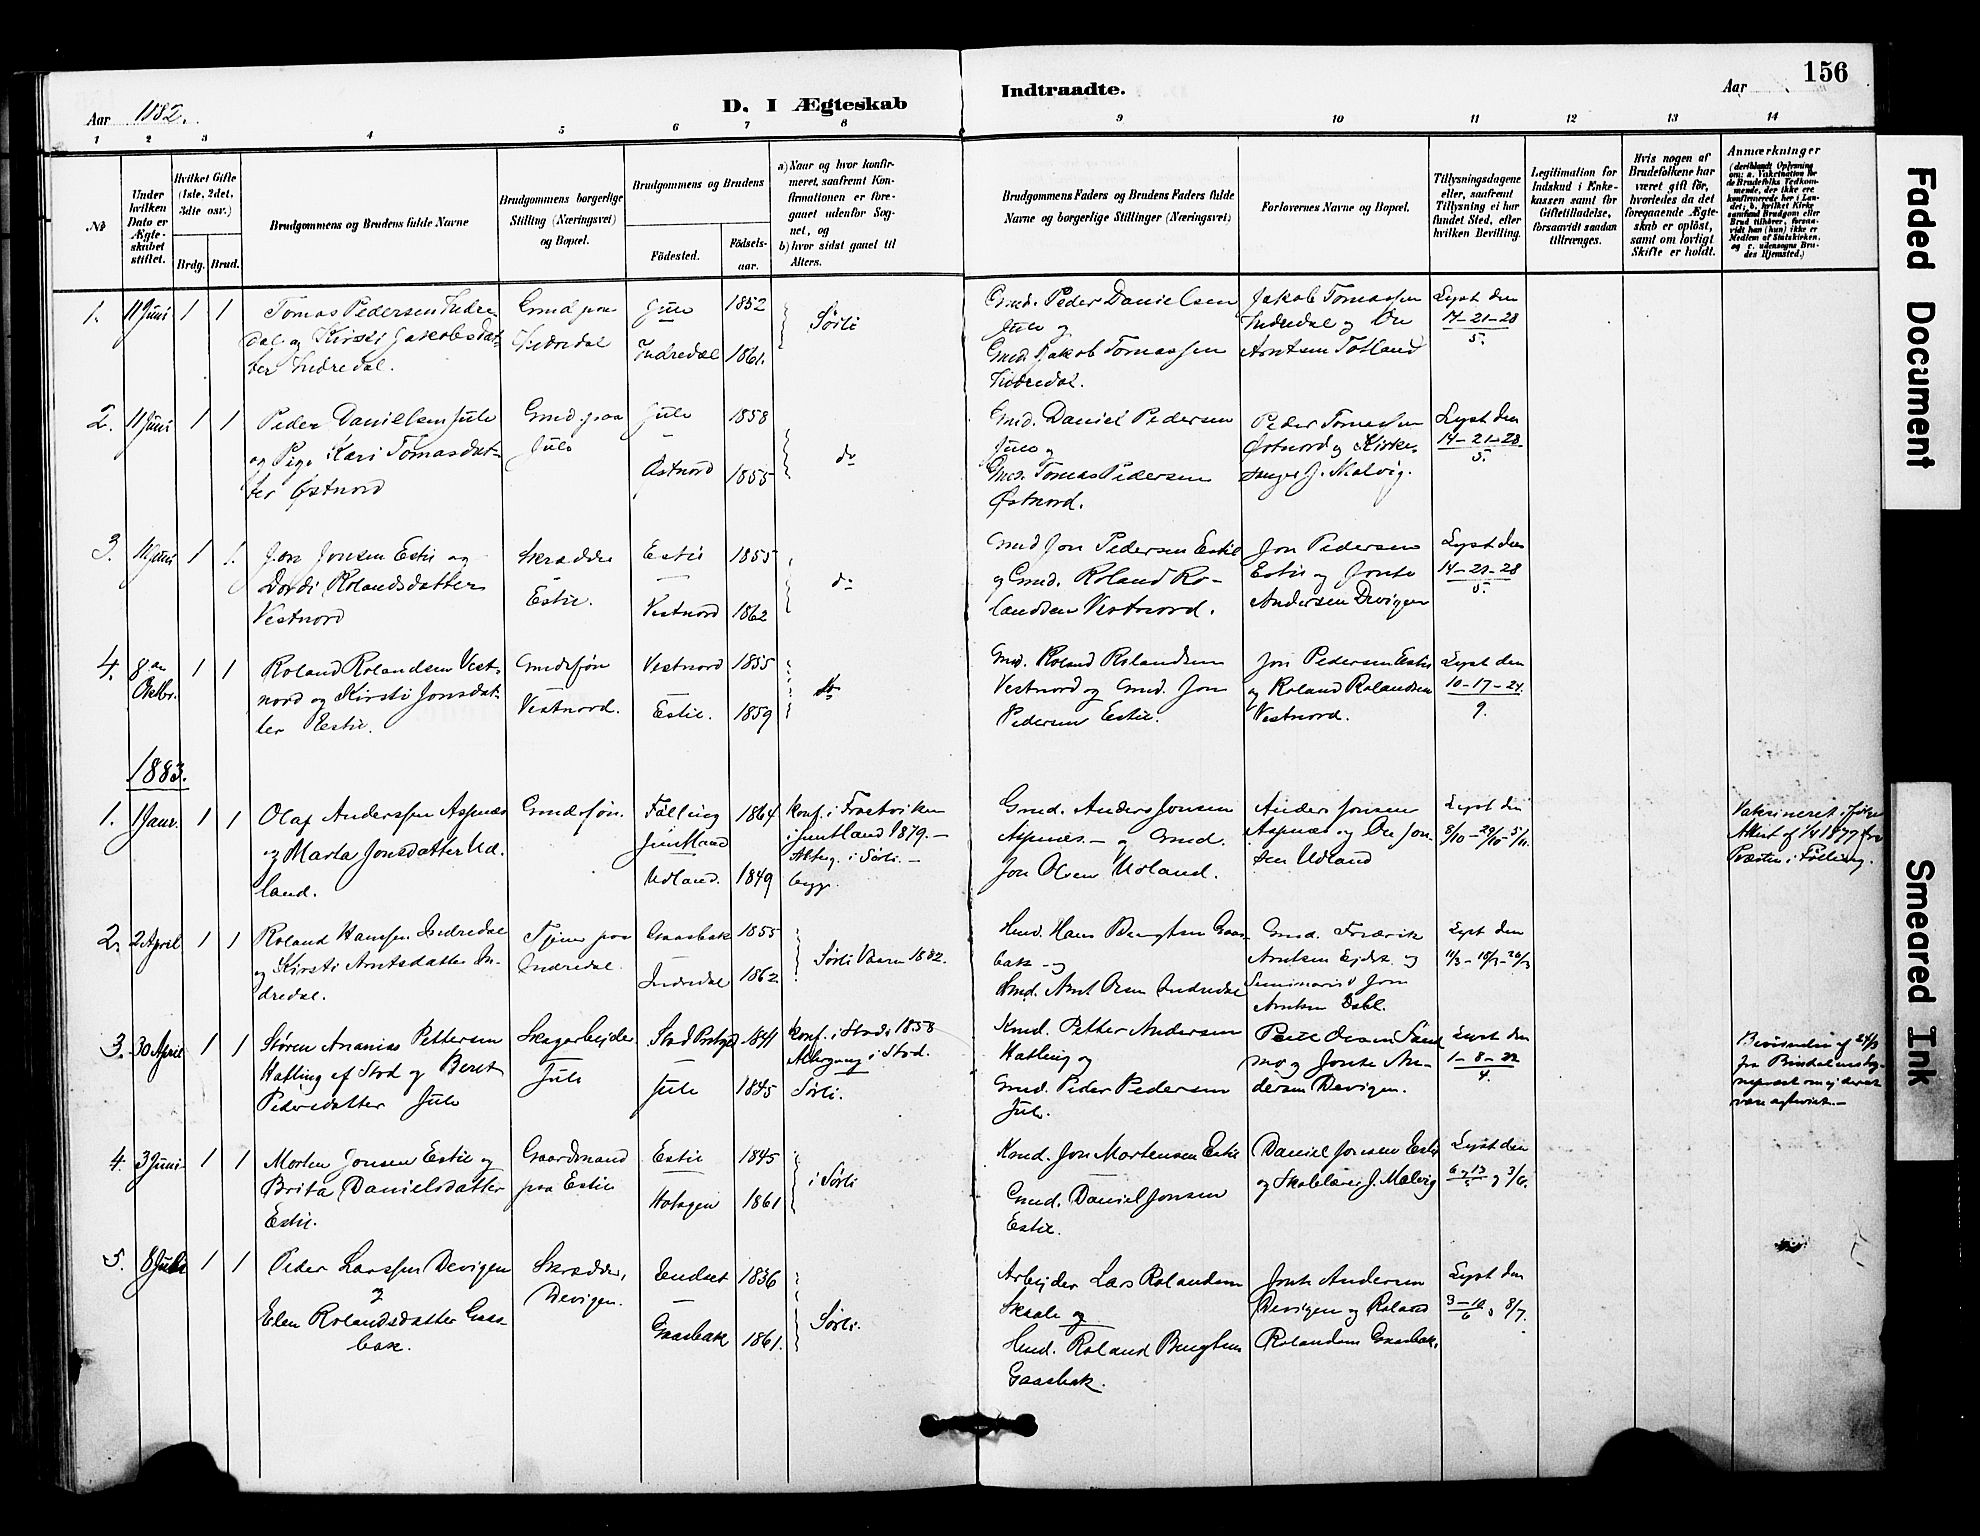 156
Aar 1882.
D. I Ægteskab Indtraadte.
Aar
1 2 3 4 5 6 7 8 9 10 11 12 13 14
No
Under hvilken Dato er Ægteskabet stiftet.
Hvilket Gifte (1ste, 2det, 3die osv.)
Brdg. Brud.
Brudgommens og Brudens fulde Navne
Brudgommens borgerlige Stilling (Næringsvei) og Bopæl.
Brudgommens og Brudens
Fødested.
Fødselsaar.
a) Naar og hvor konfirmeret, saafremt Konfirmationen er foregaaet udenfor Sognet, og
b) hvor sidst gaaet til Alters.
Brudgommens Faders og Brudens Faders fulde Navne og borgerlige Stillinger (Næringsvei)
Forlovernes Navne og Bopæl.
Tillysningsdagene eller, saafremt Tillysning ei har fundet Sted, efter hvilken Bevilling.
Legitimation for Indskud i Enkekassen samt for Giftetilladelse, forsaavidt saadan tiltrænges.
Hvis nogen af Brudefolkene har været gift før, hvorledes da det foregaaende Ægteskab er opløst, samt om lovligt Skifte er holdt.
Anmærkninger
(deriblandt Oplysning om: a. Vakcination for de Brudefolks Vedkommende, der ikke ere konfirmerede her i Landet, b. hvilket Kirkesamfund Brudgom eller Brud tilhører, forsaavidt han (hun) ikke er Medlem af Statskirken, og c. udensogns Brudes Hjemsted.)
1. 11 Juni 1 1
Tomas Pedersen Indredal og Kirsti Jakobsdatter Indredal.
Gmd paa Indredal
Jule 1852
Indredal 1861.
Sørli
Gmd. Peder Danielsen Jule og
Gmd. Jakob Tomassen Indredal.
Jakob Tomassen Indredal og Ole Arntsen Totland
Lyst den 14-21-28 5.
2. 11 Juni 1 1
Peder Danielsen Jule og Pige Kari Tomasdatter Østnord
Gmd. paa Jule
Jule 1858
Østnord 1855
do
Gmd. Daniel Pedersen Jule og
Gmd. Tomas Pedersen Østnord.
Peder Tomassen Østnord og Kirkesanger J. Malvig.
Lyst den 14-21-28. 5.
3. 11 Juni 1 1.
Jon Jonsen Estil og Dordi Rolandsdatter Vestnord
Skrædder Estil.
Estil 1855
Vestnord 1862
do
Gmd Jon Pedersen Estil og Gmd. Roland Rolandsen Vestnord.
Jon Pedersen Estil og Jonte Andersen Devigen
Lyst den 14-21-28 5.
4. 8de Oktbr. 1 1
Roland Rolandsen Vestnord og Kirsti Jonsdatter Estil.
Gmdssøn Vestnord.
Vestnord 1855
Estil. 1859
do
Gmd. Roland Rolandsen Vestnord og Gmd. Jon Pedersen Estil.
Jon Pedersen Estil og Roland Rolandsen Vestnord.
Lyst den 10-17-24. 9.
1883.
1. 1 Janr. 1 1
Olaf Anderssen Aspnæs og Marta Jonsdatter Udland.
Gmdssøn.
Følling Jemtland 1864
Udland. 1849
Konf. i Jemtland 1879.-
Gmd. Anders Jonsen Aspnæs - og Gmd.
Jon Olsen Udland.
Anders Jonsen Aspnæs og Ole Jonsen Udland
Lyst den 8/10-29/10-5/11.
Præsten i Følling.
2. 2 April 1 1
Roland Hanssen Indredal og Kirsti Arntsdatter Indredal.
Tjener paa Indredal.
Gaasbak 1855
Indredal 1862
Sørli Vaaren 1882.
Hmd. Hans Bengtsen Gaasbak og
Gmd. Arnt Olsen Indredal
Gmd. Fredrik Arntsen Ejdet og Seminarist Jon Arntsen Dahl.
Lyst den 11/3-18/3-26/3
3. 30 April 1 1
Søren Ananias Pettersen Hatling af Stod og Beret Pedersdatter Jule
Skogarbejder Jule
Stod Prstgd 1841
Jule 1845
Konf. i Stod 1858
Altergang i Stod.
Sørli.
Kmd. Petter Andersen Hatling og
Gmd. Peder Pedersen Jule.
Peder Olsen Sandmo og Jonte Andersen Devigen.
Lyst den 1-8-22 4.
4. 3 Juni 1 1
Morten Jonsen Estil og Brita Danielsdatter Estil.
Gaardmand paa Estil
Estil 1845
Hotagen 1861
i Sørli
Kmd. Jon Mortensen Estil
Gmd. Daniel Jonsen Estil.
Daniel Jonsen Estil og Skolelærer J. Malvig
Lyst den 6-13 5 og 3/6.
5. 8 Juli 1 1
Peder Larssen Devigen og
Elen Rolandsdatter Gaasbak.
Skrædder, Devigen.
Lundset 1836
Gaasbak 1861.
Sørli.
Arbejder Lars Rolandsen Skaale og
Hmd. Roland Bengtsen Gaasbak.
Jonte Andersen Devigen og Roland Rolandsen Gaasbak.
Lyst den 3-10 6 og 8/7.
Faded Document
Smeared Ink